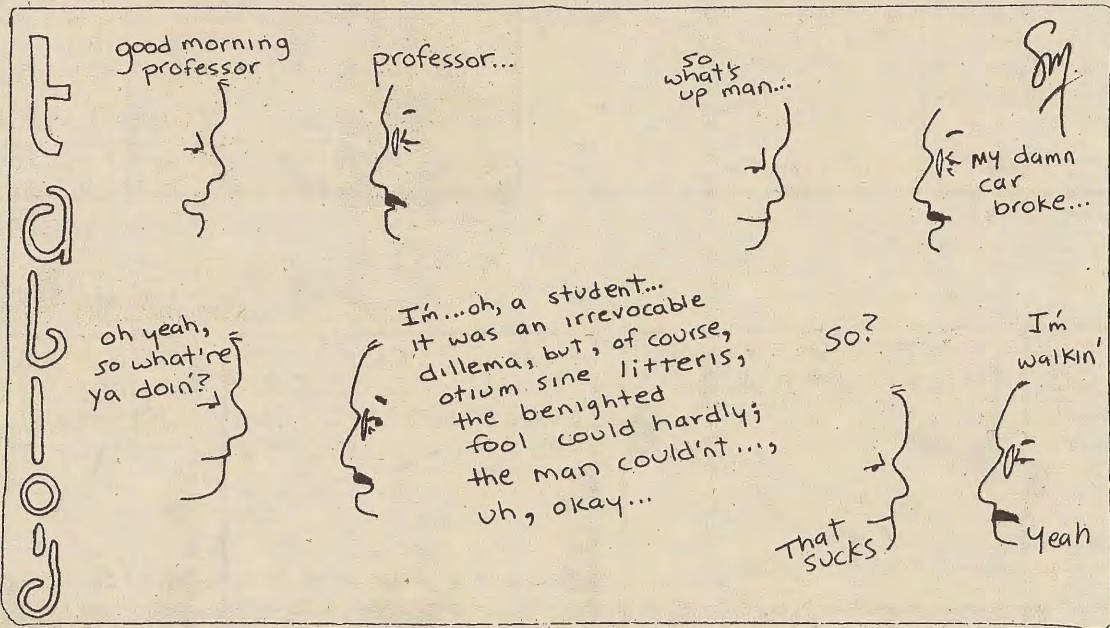 tabloid
good morning
professor
professor...
so
what's
up man...
Sm
My damn
car
broke...
oh yeah,
so what're
ya doin'?
I'm...oh, a student...
it was an irrevocable
dillema, but, of course,
otium sine litteris,
the benighted
fool could hardly;
the man could'nt...,
uh, okay...
So?
I'm
walkin'
That
sucks
Yeah